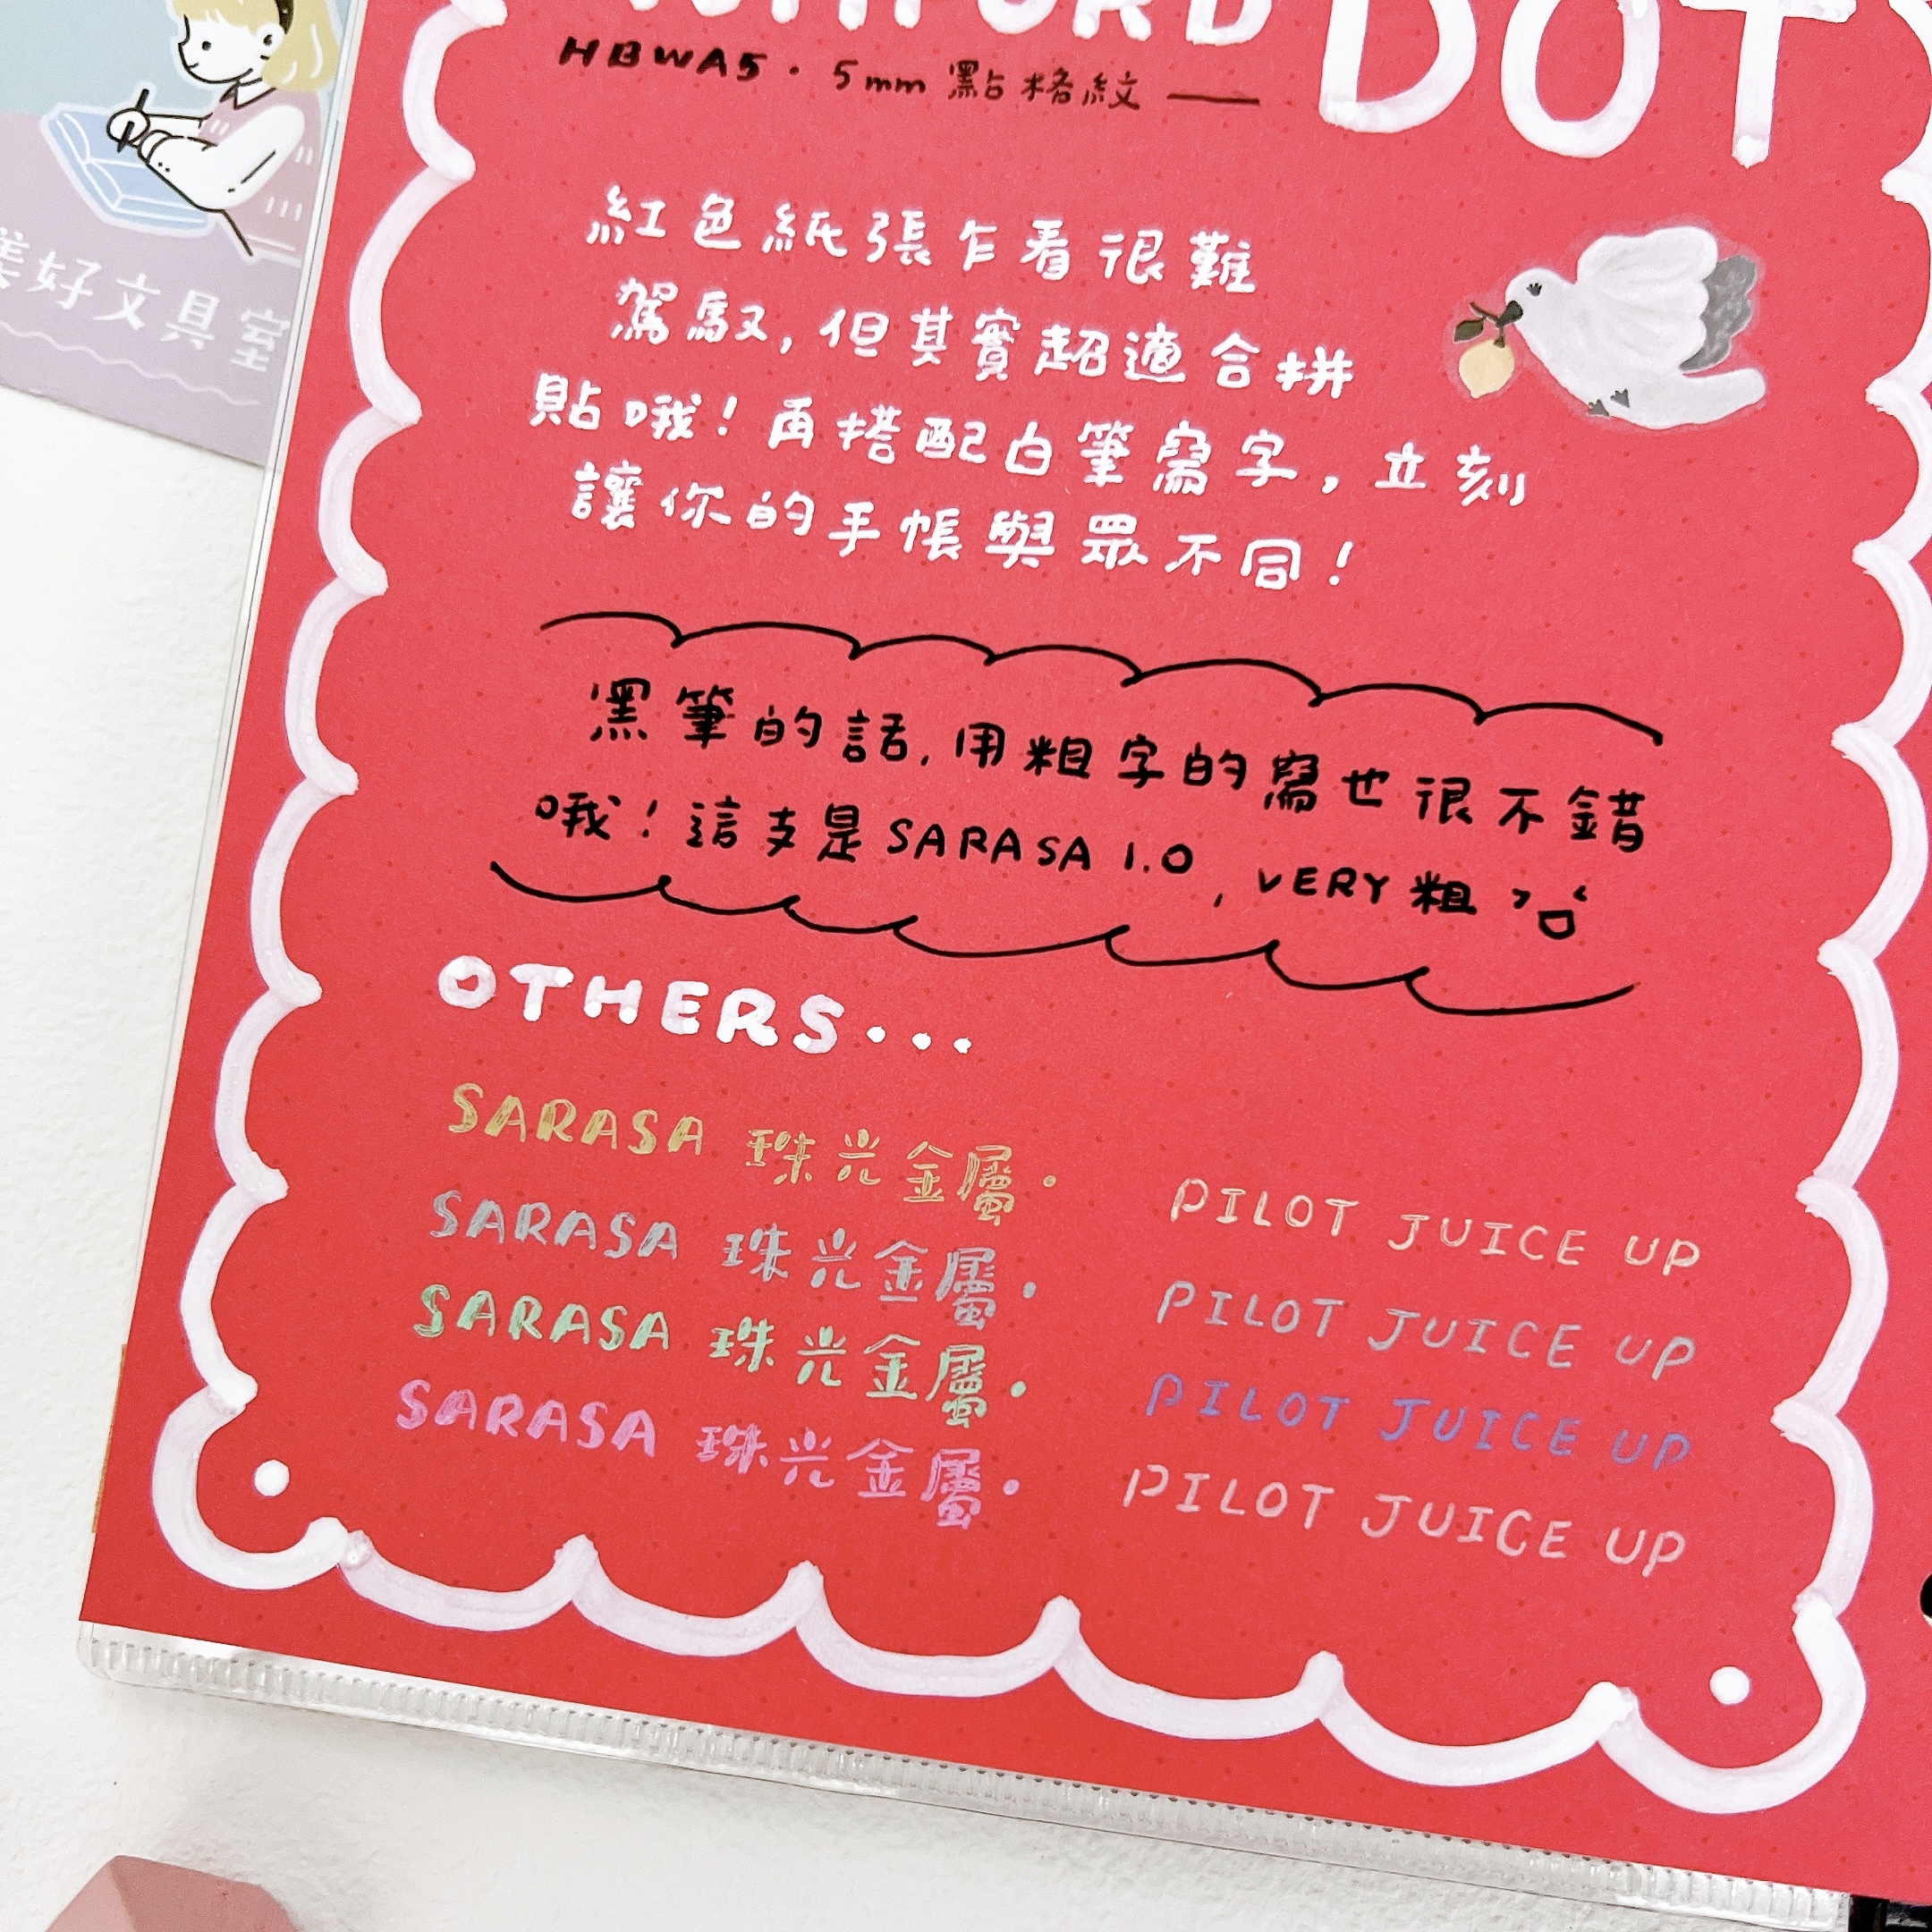 DOT
HBWA5 · 5mm 點格紋 —
紅色紙張乍看很難
駕馭, 但其實超適合拼
貼哦! 再搭配白筆寫字, 立刻
讓你的手帳與眾不同!
黑筆的話, 用粗字的寫也很不錯
哦! 這支是 SARASA 1.0, VERY 粗
OTHERS···
SARASA 珠光金屬·
SARASA 珠光金屬·
SARASA 珠光金屬·
SARASA 珠光金屬·
PILOT JUICE UP
PILOT JUICE UP
PILOT JUICE UP
PILOT JUICE UP
美好文具室